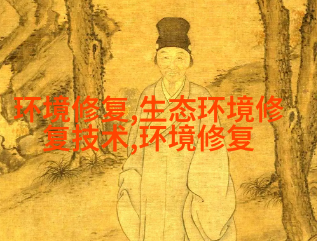 环境修复,生态环境修
复技术,环境修复